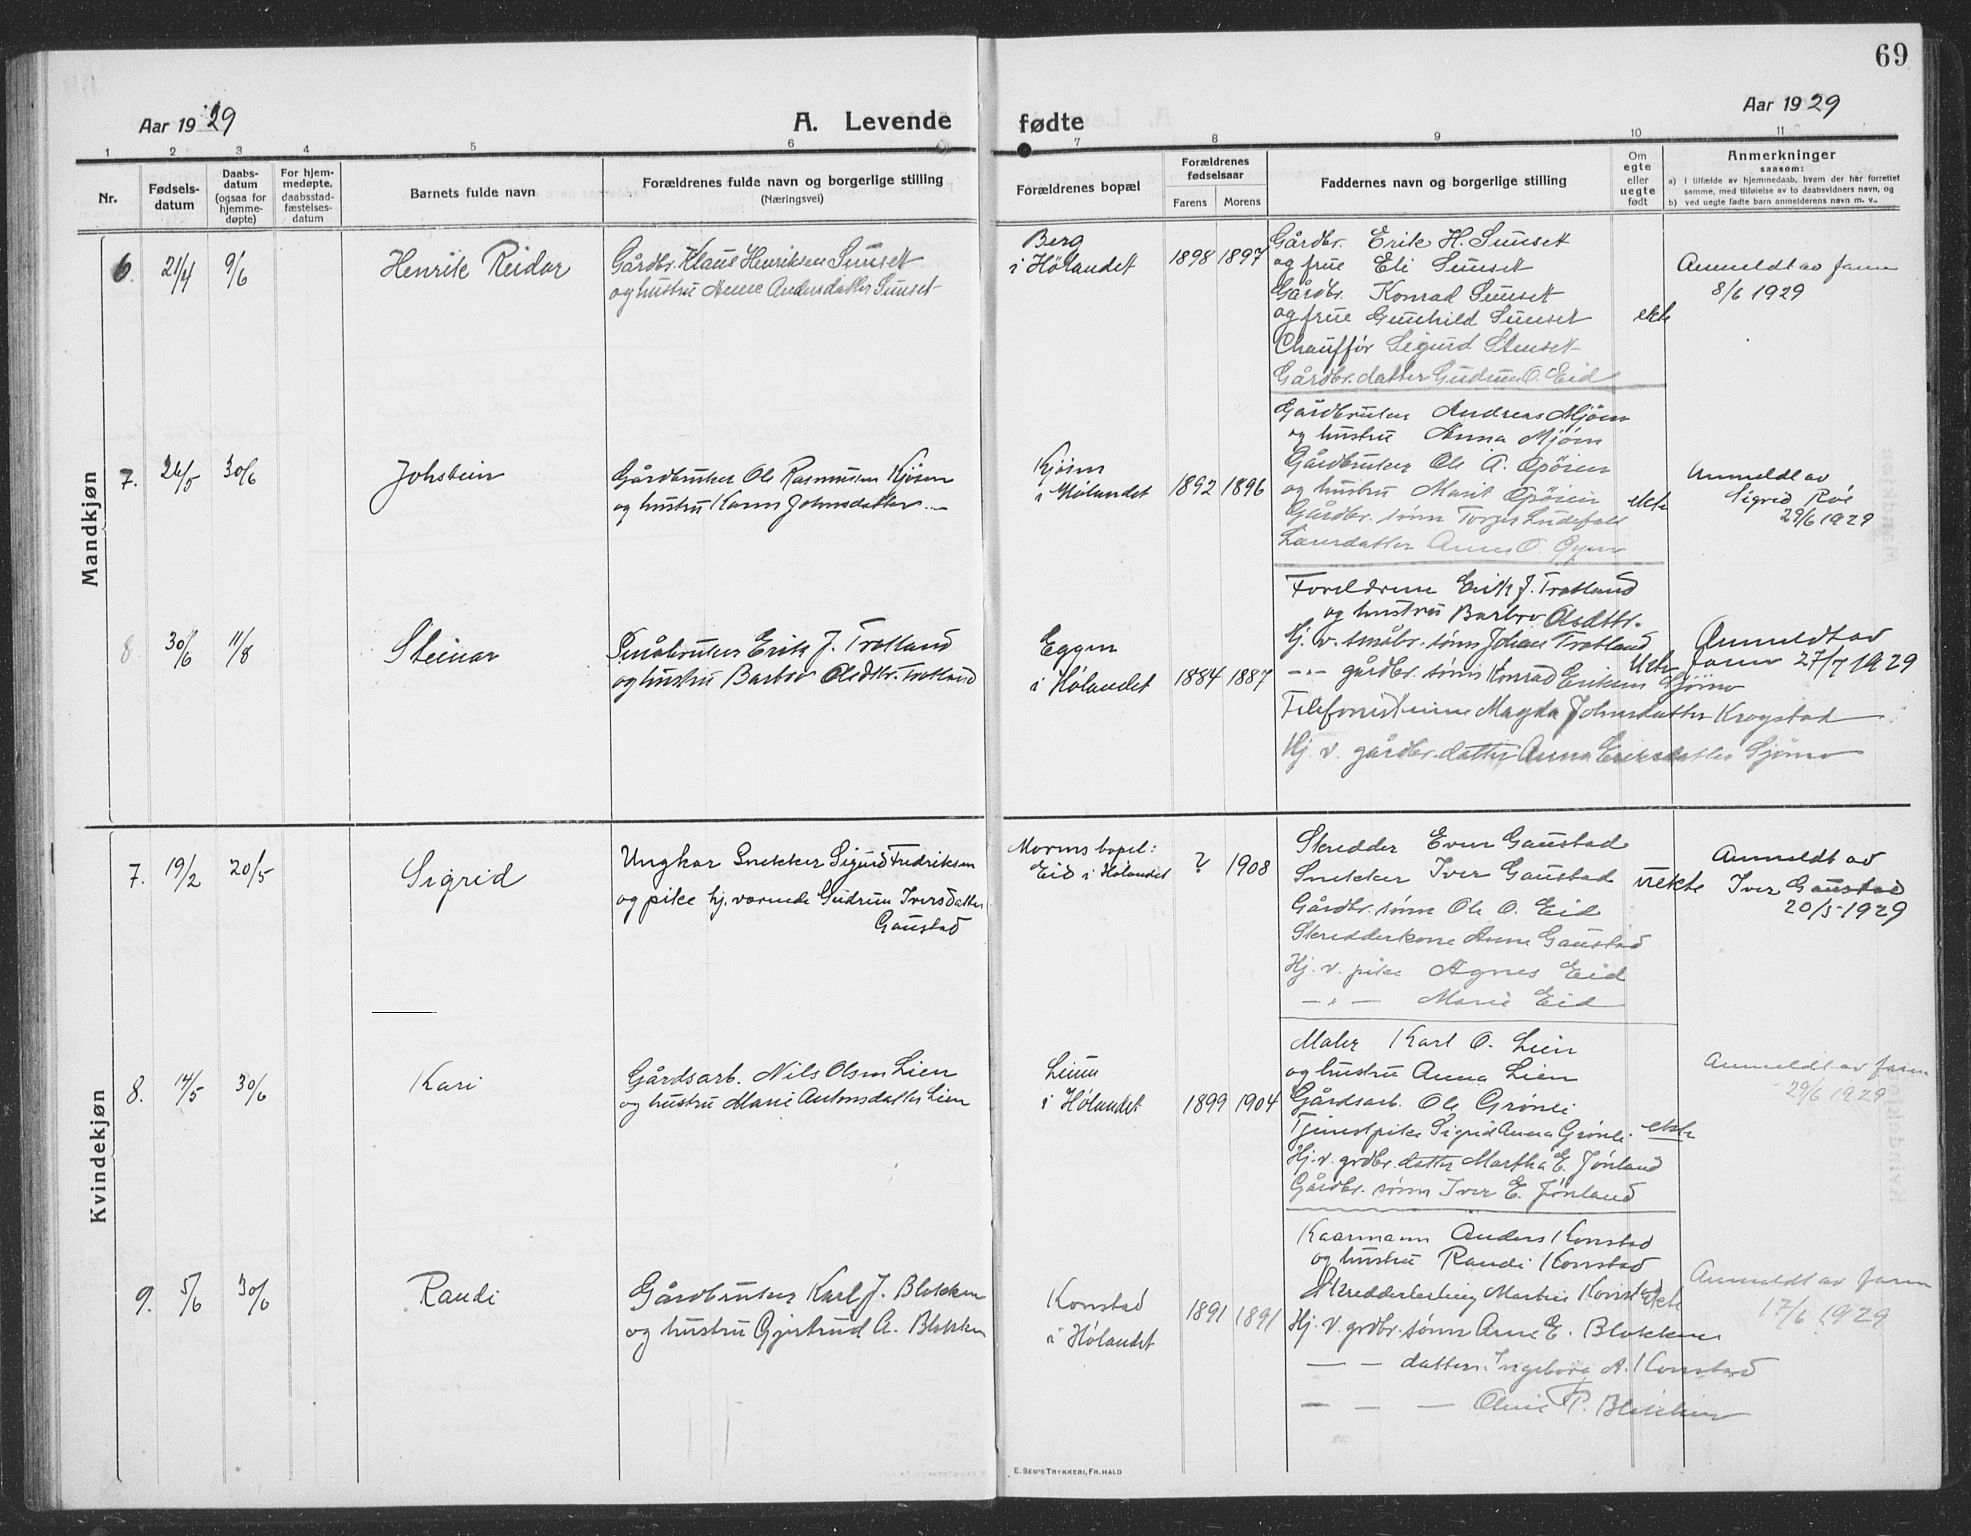 69
Aar 1929
A. Levende
fødte
Aar 1929
1 2 3 4 5 6 7 8 9 10 11
Nr.
Fødsels-
datum
Daabs-
datum
(ogsaa for
hjemme-
døpte)
For hjem-
medøpte,
daabsstad-
fæstelses-
datum
Barnets fulde navn
Forældrenes fulde navn og borgerlige stilling
(Næringsvei)
Forældrenes bopæl
Forældrenes
fødselsaar
Farens
Morens
Faddernes navn og borgerlige stilling
Om
egte
eller
uegte
født
Anmerkninger
saasom:
a) I tilfælde av hjemmedaab, hvem der har forrettet
samme, med tilføielse av to daabsvidners navn, og
b) ved uegte fødte barn anmelderens navn m. v.,
Mandkjøn
6. 21/4 9/6
Henrik Reidar
Gårdbr. Klaus Henriksen Sunset
og hustru Anne Andersdatter Sunset
Berg
i Hølandet
1898 1897
Gårdbr. Erik H. Sunset
og frue Eli Sunset
Gårdbr. Konrad Sunset
og frue Gunhild Sunset
Chauffør Sigurd Stenset
Gårdbr. datter Gudrun O. Eid
ekte
Anmeldt av faren
8/6 1929
7. 26/5 30/6
Johstein
Gårdbruker Ole Rasmussen Kjösen
og hustru Karen Johnsdatter
i Hølandet
1892 1896
Gårdbruker Andreas Mjöen
og hustru Anna Mjöen
Gårdbruker Ole A. Opöien
og hustru Marit Opöien
Gårdbr. sønn Torger
Anne O.
ekte
Anmeldt av
Sigrid Roé
29/6 1929
8 30/6 11/8
Steinar
Småbruker Erik J. Trotland
og hustru Barbro Olsdtr. Trotland
Eggen
i Hølandet
1884 1887
Foreldrene Erik J. Trotland
og hustru Barbro Olsdtr.
Hj. v. småbr. sønn Johan Trotland
-"- gårdbr. sønn Konrad Eriksen Sjömo
Telefonistinne Magda Johnsdatter Krogstad
Hj. v. gårdbr. datter Anna Eriksdatter Sjömo
ekte
Anmeldt av
faren 27/7 1929
Kvindekjøn
7. 19/2 20/5
Sigrid
Ungkar Snekker Sigurd Fredriksen
og pike hj. værende Gudrun Iversdatter
Gaustad
Morens bopel:
Eid i Hølandet
? 1908
Skredder Even Gaustad
Snekker Iver Gaustad
Gårdbr. sønn Ole O. Eid
Skredderkone Anne Gaustad
Hj. v. pike Agnes Eid
-"- Marie Eid
uekte
Anmeldt av
Iver Gaustad
20/5 1929
8. 14/5 30/6
Kari
Gårdsarb. Nils Olsen Lien
og hustru Marie Antonsdatter Lien
i Hølandet
1899 1904
Maler Karl O. Lien
og hustru Anna Lien
Gårdsarb. Ole Grönli
Tjenestpike Sigrid Anna Grönli
Hj. v. grdbr. datter Martha E. Jönland
Gårdbr. sønn Iver E. Jönland
ekte
Anmeldt av faren
29/6 1929
9. 5/6 30/6
Randi
Gårdbruker Karl J. Blokken
og hustru Gjertrud A. Blokken
Konstad
i Hølandet
1891 1891
Kaarmann Anders Konstad
og hustru Randi Konstad
Skredderlærling Martin Konstad
Hj. v. grdbr. sønn Arne E. Blokken
— — datter Ingeborg A. Konstad
— — — P. Blokken
ekte
Anmeldt av faren
17/6 1929
E. Sem's Trykkeri, Fr.hald